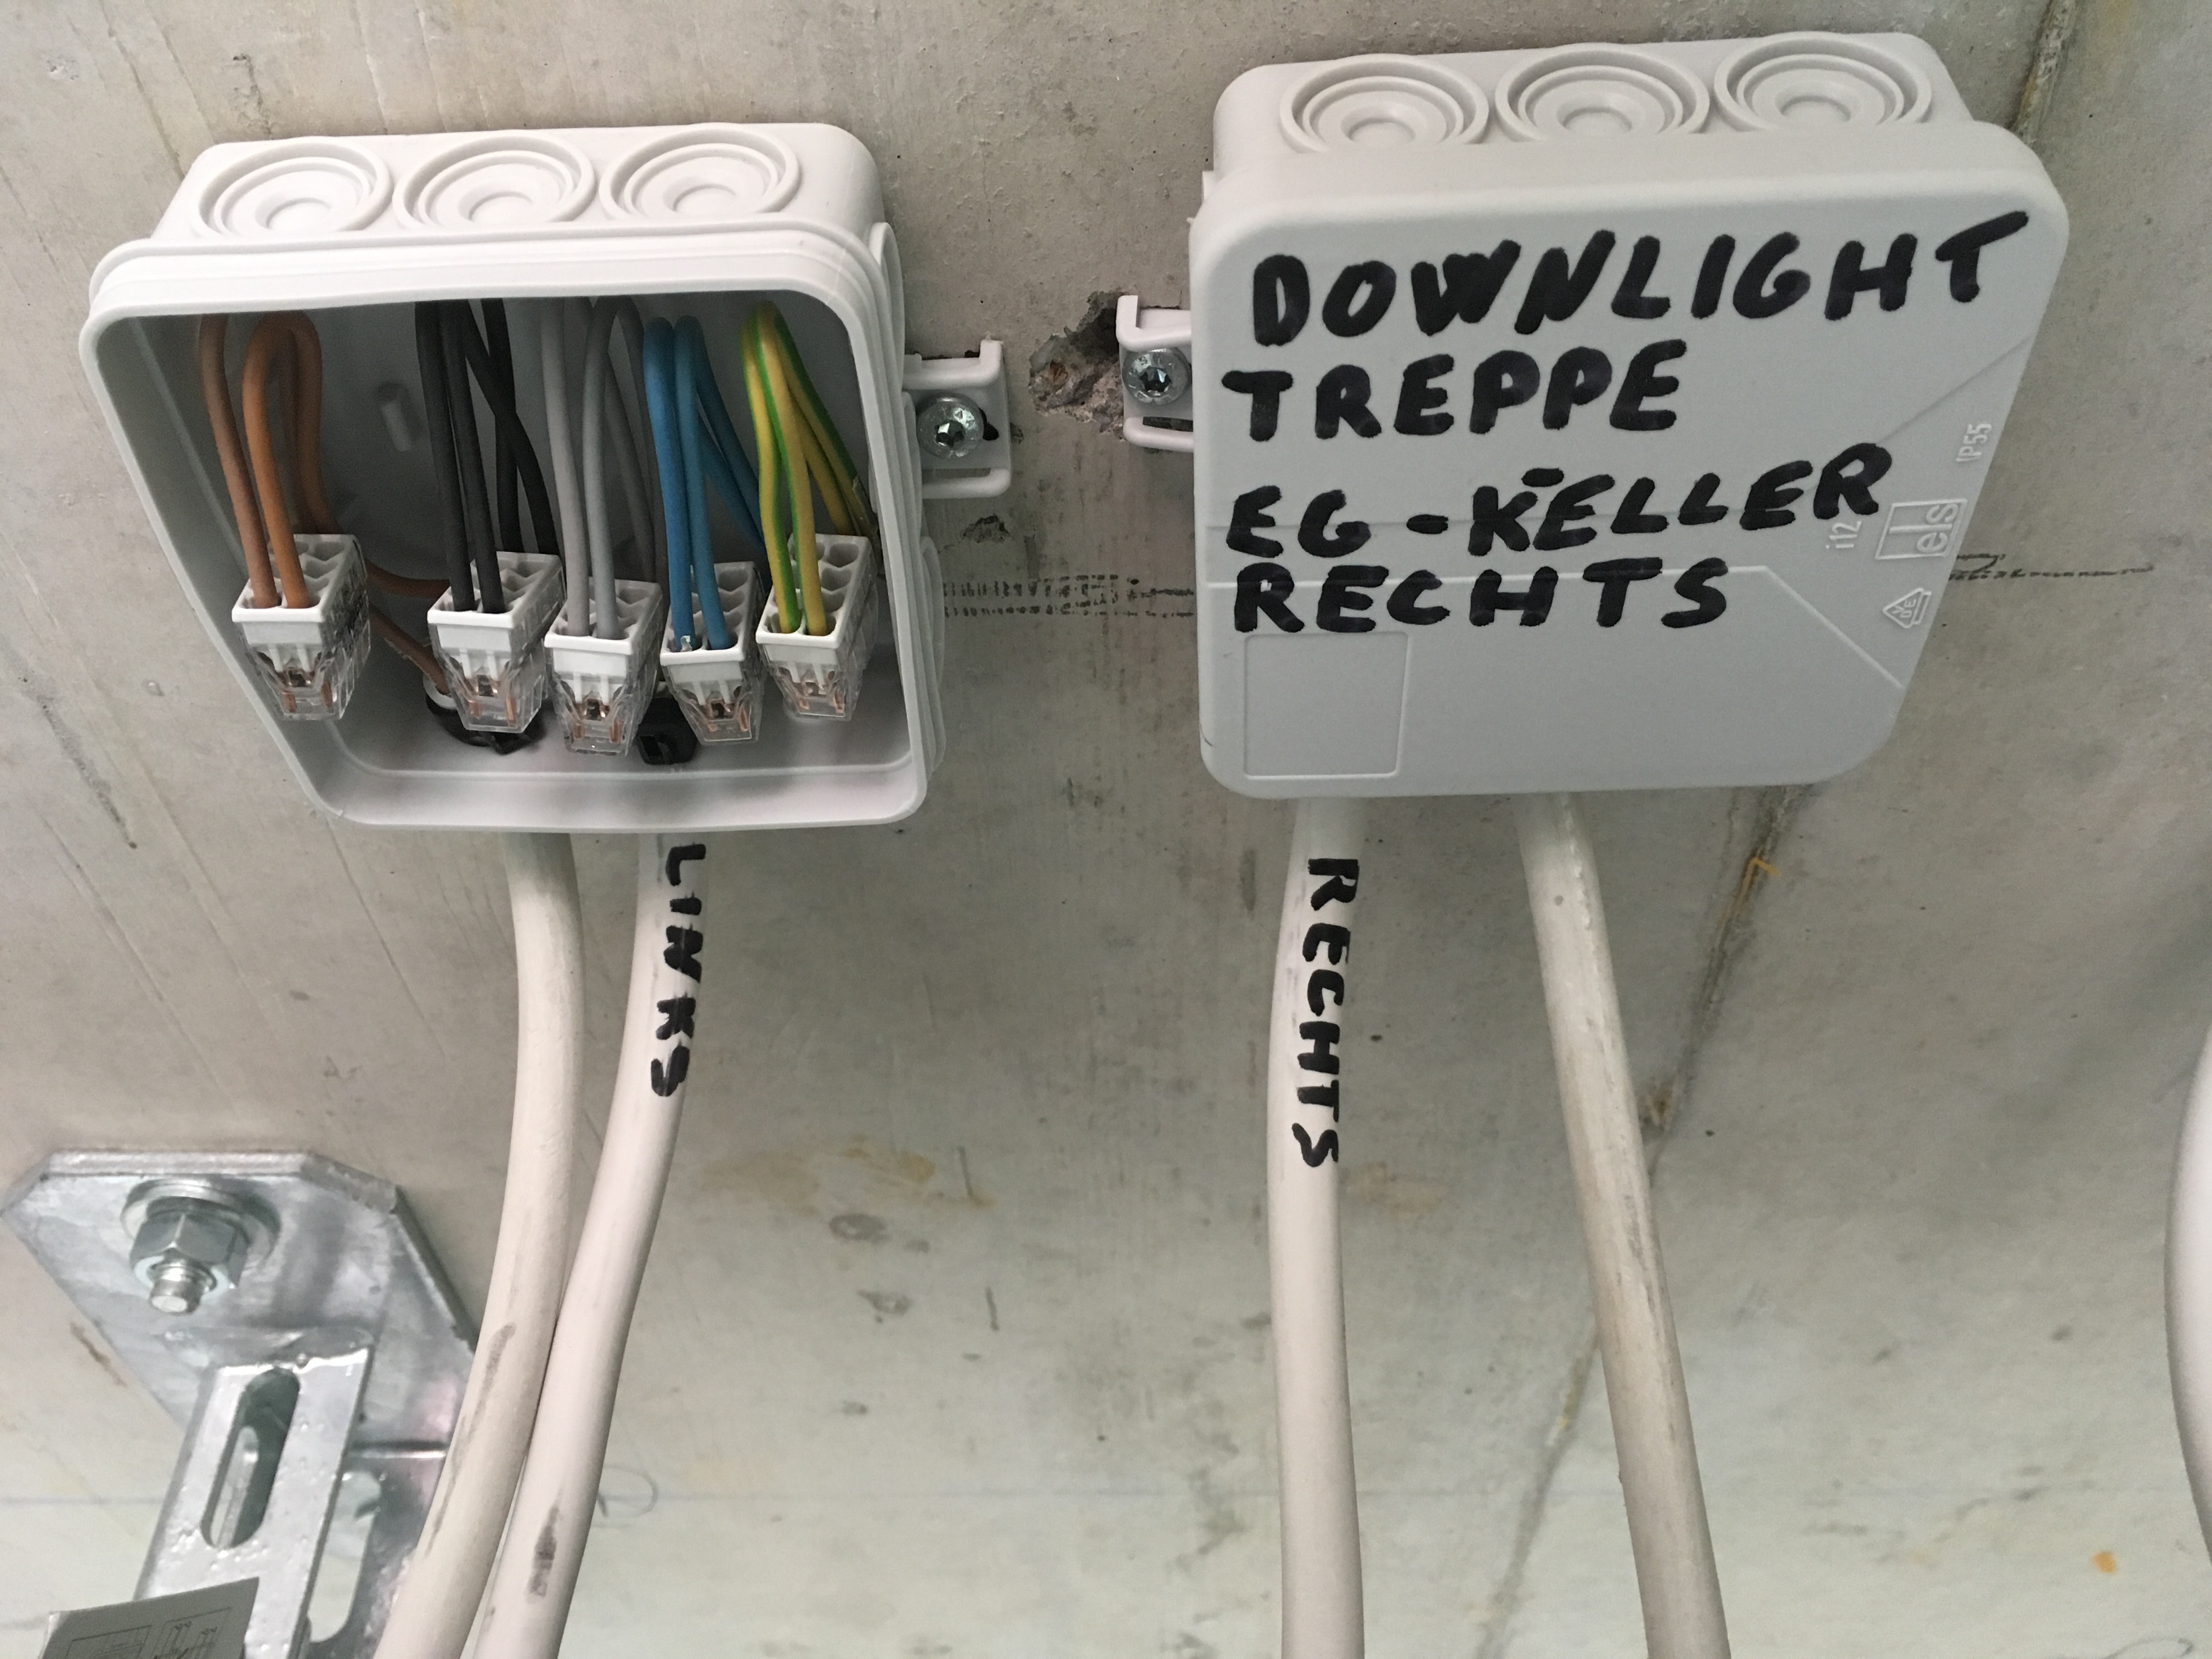 DOWNLIGHT
TREPPE
EG-KELLER
RECHTS
IP55
i12
els
VDE
LINKS
RECHTS